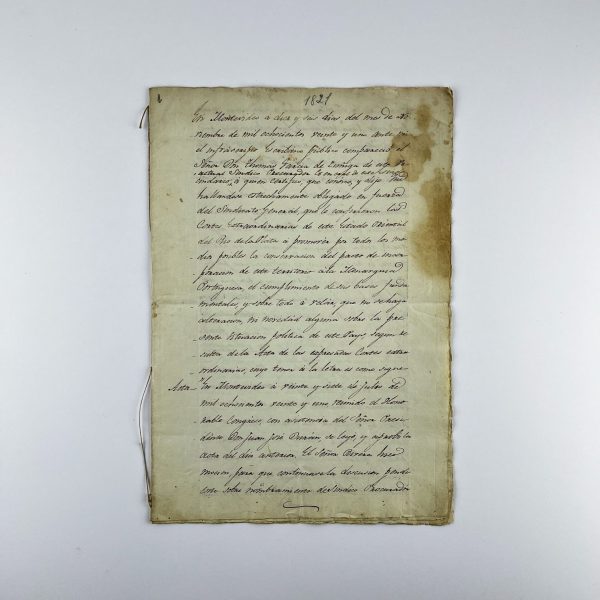 1821
En Montevideo a diez y seis dias del mes de No-
viembre de mil ochocientos veinte y uno ante mi
el infrascripto Escribano publico compareció el
Señor Don Thomas Garcia de Zuñiga de este ve-
cindario, á quien certifico, que conosco, y dijo: Que
hallandose estrechamente obligado en fuerza
del Sindicato General, que le confirieron las
Cortes Extraordinarias de este Estado Oriental
del Rio de la Plata á promover por todos los me-
dios posibles la conservacion del pacto de incor-
poracion de este territorio á la Monarquia
Portuguesa, el cumplimiento de sus bases funda-
mentales, y sobre todo á velar, que no se haga
alteracion, ni novedad alguna sobre la pre-
sente situacion politica de este Pays, segun re-
sulta de la Acta de las expresadas Cortes extra-
ordinarias, cuyo tenor á la letra es como sigue
Acta En Montevideo á veinte y siete de Julio de
mil ochocientos veinte y uno reunido el Hono-
rable Congreso, con asistencia del Señor Presi-
dente Don Juan José Duran, se leyó, y aprobó la
acta del dia anterior. El Señor hizo
mocion, para que continuara la discusion pendi-
ente sobre nombramiento de Sindico Procurador